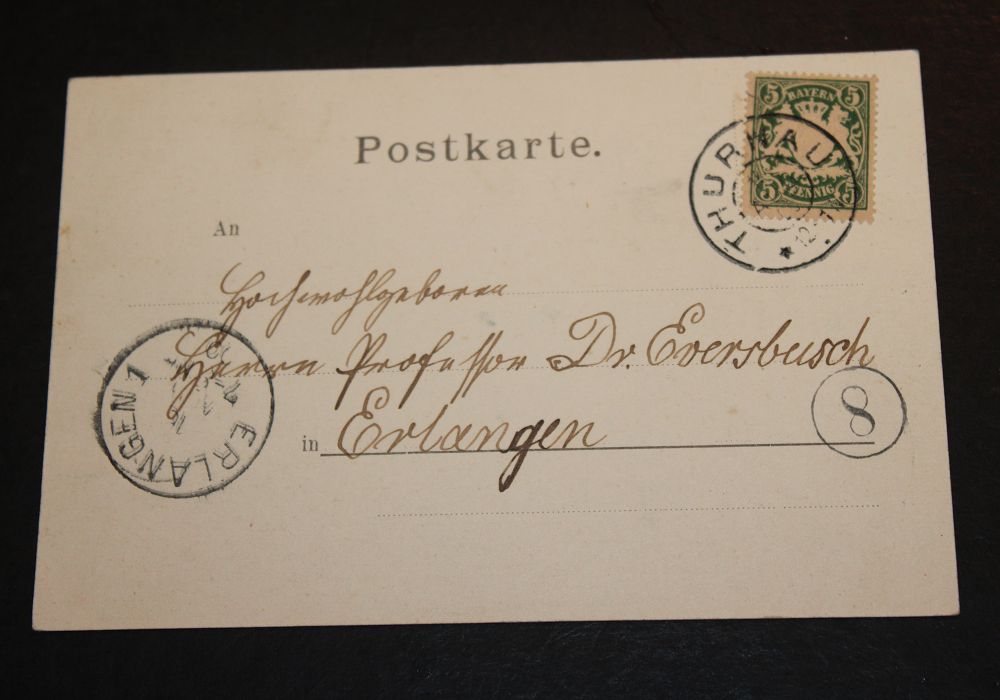 Postkarte.
5 BAYERN 5
5 PFENNIG 5
THURNAU
An
Hochwohlgeboren
Herrn Professor Dr. Eversbusch
in Erlangen
8
ERLANGEN 1